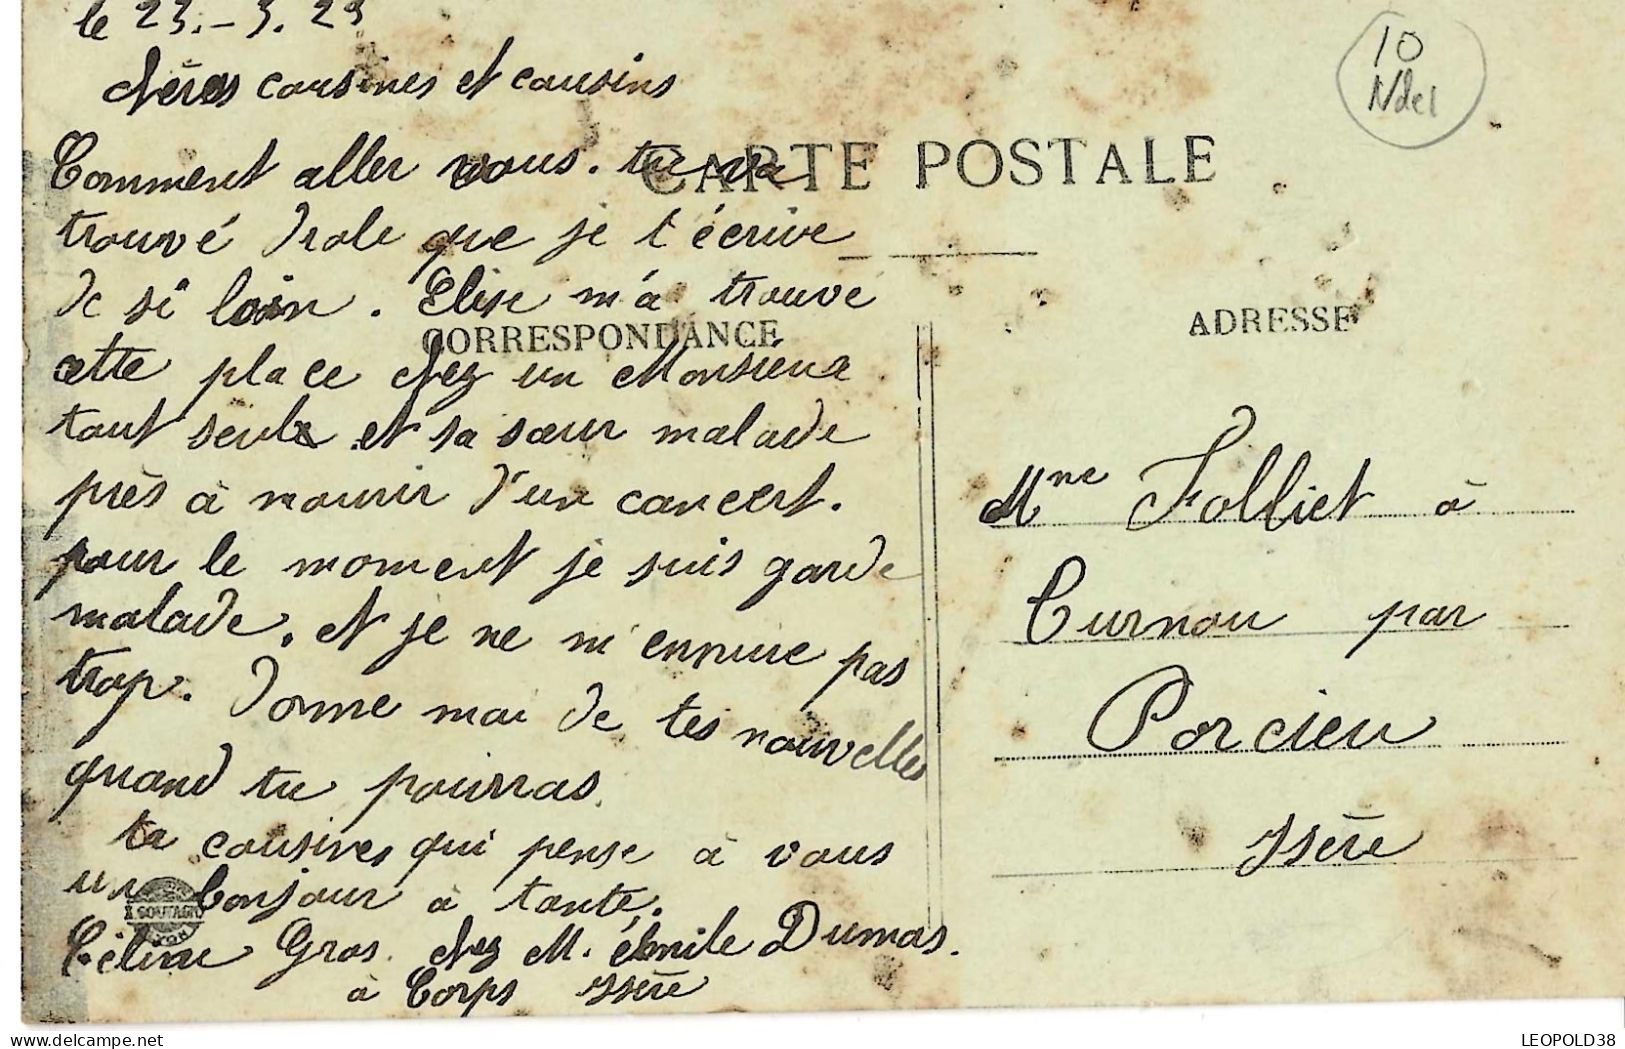 le 23.-3.23
chères cousines et cousins
Comment aller vous. tu va
trouvé drole que je t'écrive
de si loin. Elise m'a trouvé
cette place chez un Monsieur
tout seule et sa sœur malade
près à mourir d'un cancert.
pour le moment je suis garde
malade. et je ne m'ennuie pas
trop. donne moi de tes nouvelles
quand tu pourras.
ta cousines qui pense à vous
un bonjour à tante.
Céline Gros. chez M. émile Dumas.
à Corps Isère
10
Ndel
CARTE POSTALE
CORRESPONDANCE
ADRESSE
Mme Folliet à
Curnou par
Porcieu
Isère
delcampe.net
LEOPOLD38